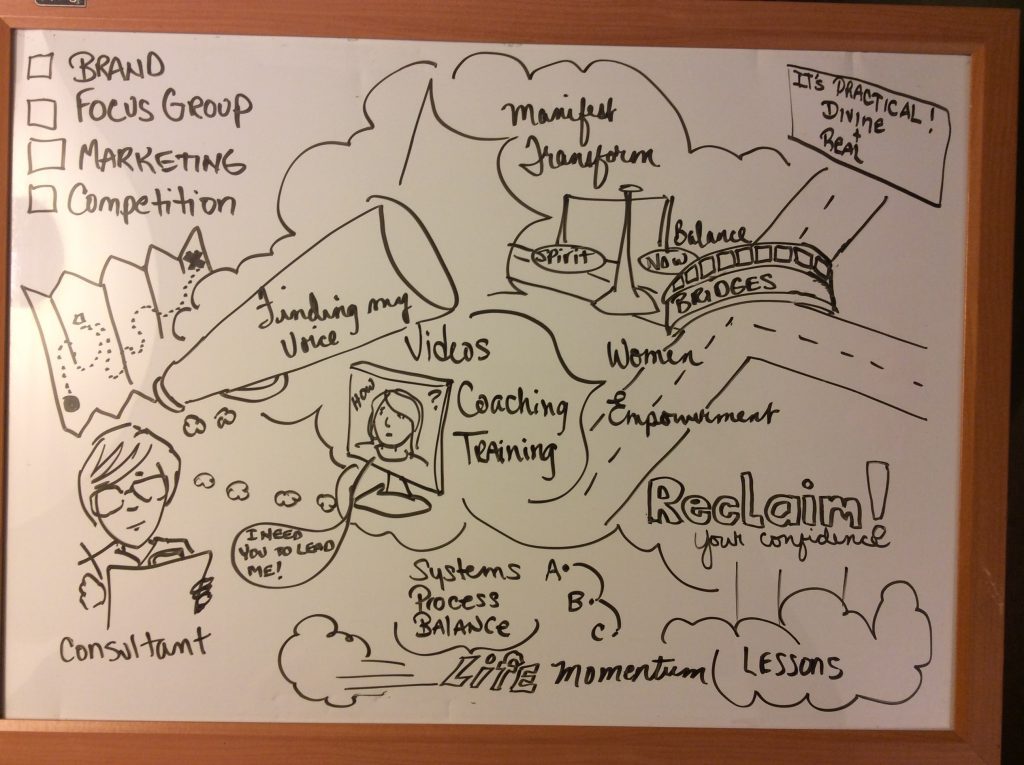 BRAND
FOCUS GROUP
MARKETING
Competition
Manifest
Transform
IT'S PRACTICAL!
DIVINE
+
REAL
Balance
Spirit
NOW
BRIDGES
Finding my
Voice
Videos
HOW
?
Coaching
TRAINING
Women
Empowerment
RECLAIM!
your confidence
I NEED
YOU TO LEAD
ME!
Consultant
Systems
Process
BALANCE
A
B
C
LIFE momentum
LESSONS